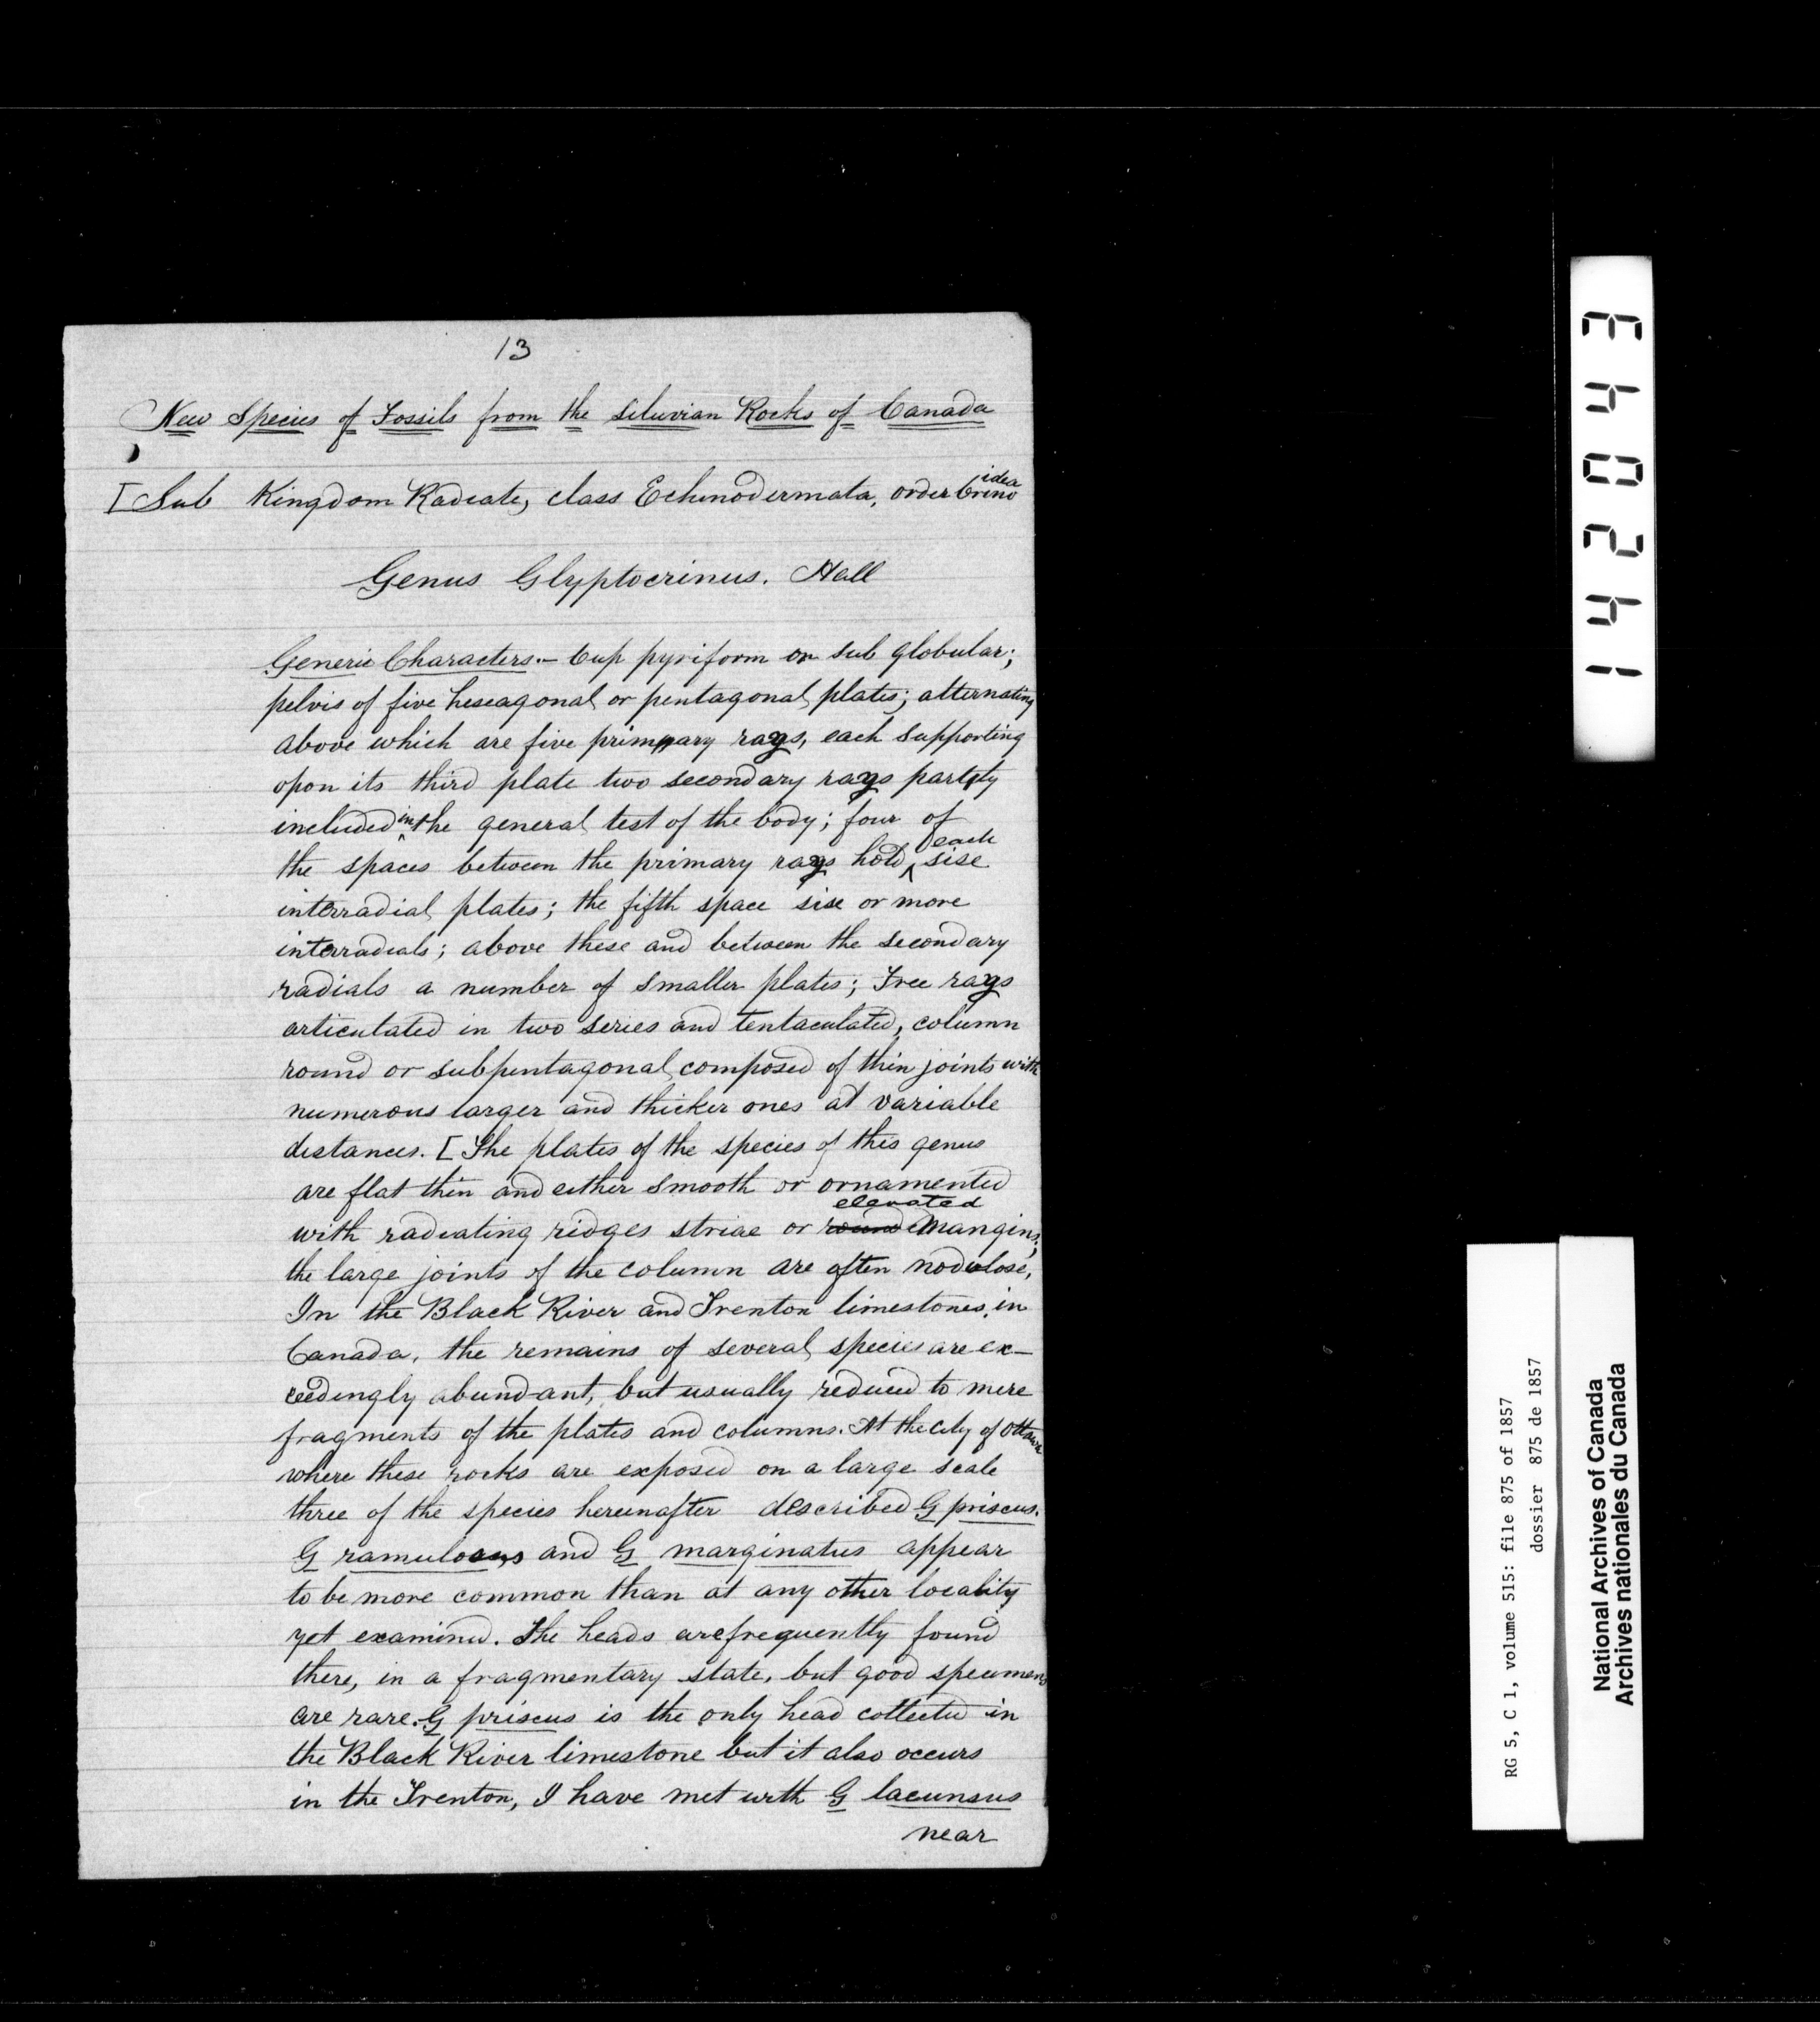 13
New Species of Fossils from the Silurian Rocks of Canada
[Sub Kingdom Radiate, class Echinodermata, order Crinoidea
Genus Glyptocrinus. Hall
Generic Characters.- Cup pyriform or sub globular;
pelvis of five hexagonal or pentagonal plates; alternating
above which are five primary rays, each supporting
upon its third plate two secondary rays partly
included in the general test of the body; four of
the spaces between the primary rays hold each six
interradial plates; the fifth space six or more
interradials; above these and between the secondary
radials a number of smaller plates; Free rays
articulated in two series and tentaculated, column
round or subpentagonal composed of thin joints with
numerous larger and thicker ones at variable
distances. [The plates of the species of this genus
are flat thin and either smooth or ornamented
with radiating ridges striae or elevated margins;
the large joints of the column are often nodulose,
In the Black River and Trenton limestones, in
Canada, the remains of several species are ex-
ceedingly abundant, but usually reduced to mere
fragments of the plates and columns. At the city of Ottawa
where these rocks are exposed on a large scale
three of the species hereinafter described G priscus.
G ramulosus and G marginatus appear
to be more common than at any other locality
yet examined. The heads are frequently found
there, in a fragmentary state, but good specimens
are rare. G priscus is the only head collected in
the Black River limestone but it also occurs
in the Trenton, I have met with G lacunsus
near
142043
RG 5, C 1, volume 515: file 875 of 1857
dossier 875 de 1857
National Archives of Canada
Archives nationales du Canada